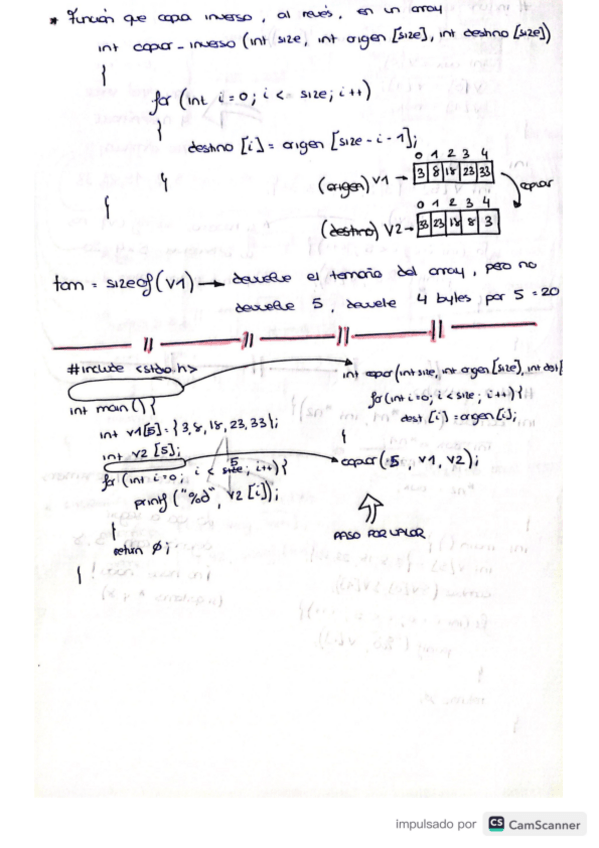 * Función que copia inverso, al revés, en un array
int copiar-inverso (int size, int origen [size], int destino [size])
{
for (int i=0; i <= size; i++)
{
destino [i] = origen [size-i-1];
}
}
0 1 2 3 4
(origen) V1 → 3 8 18 23 33
copiar
0 1 2 3 4
(destino) V2 → 33 23 18 8 3
tam = sizeof(v1) → devuelve el tamaño del array, pero no
devuelve 5, devuelve 4 bytes por 5 = 20
#include <stdio.h>
int main () {
int v1[5] = {3,8,18,23,33};
int v2 [5];
for (int i=0; i < size; i++) {
5
printf ("%d", v2 [i]);
}
return 0;
}
int copiar (int size, int origen [size], int dest[
for (int i=0; i < size; i++) {
dest [i] = origen [i];
}
copiar (5, v1, v2);
PASO POR VALOR
impulsado por CS CamScanner